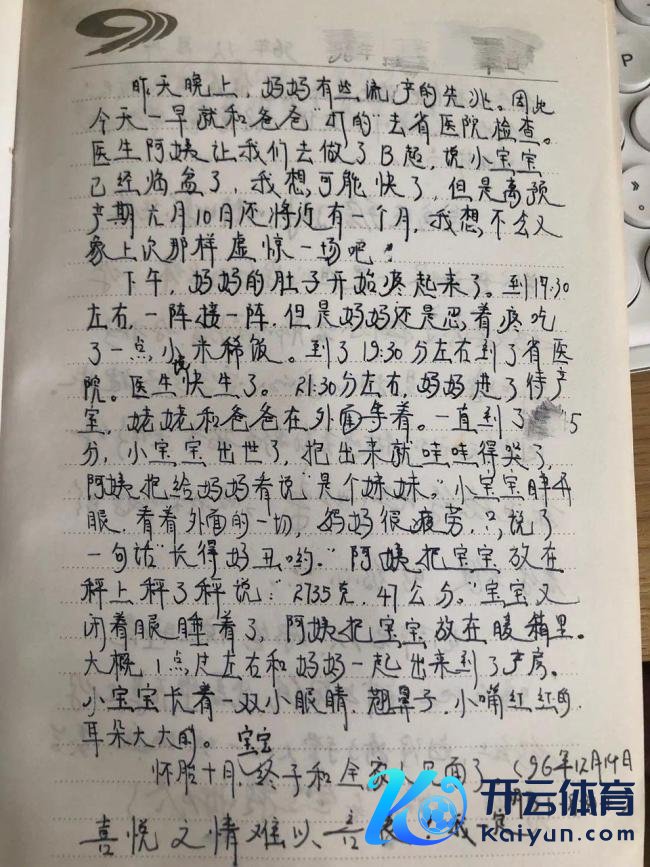 96年12月
昨天晚上，妈妈有些流产的先兆。因此
今天一早就和爸爸"打的"去省医院检查。
医生阿姨让我们去做了B超，说小宝宝
已经临盆了，我想可能快了，但是离预
产期元月10日还将近有一个月，我想不会又
象上次那样虚惊一场吧！
下午，妈妈的肚子开始疼起来了。到17:30
左右，一阵接一阵，但是妈妈还是忍着疼吃
了一点小米稀饭。到了19:30分左右到了省医
院。医生说快生了。21:30分左右，妈妈进了待产
室，姥姥和爸爸在外面等着。一直到了 5
分，小宝宝出世了，抱出来就哇哇得哭了，
阿姨把给妈妈看说"是个妹妹。"小宝宝睁开
眼，看着外面的一切，妈妈很疲劳，只说了
一句话"长得好丑哟。"阿姨把宝宝放在
秤上秤了秤说："2735克，47公分。"宝宝又
闭着眼睡着了，阿姨把宝宝放在暖箱里。
大概1点 左右和妈妈一起出来到了产房。
小宝宝长着一双小眼睛，翘鼻子，小嘴红红的，
耳朵大大的。
怀胎十月，宝宝终于和全家人见面了（96年12月14日
喜悦之情难以言表
开云体育
Kaiyun.com